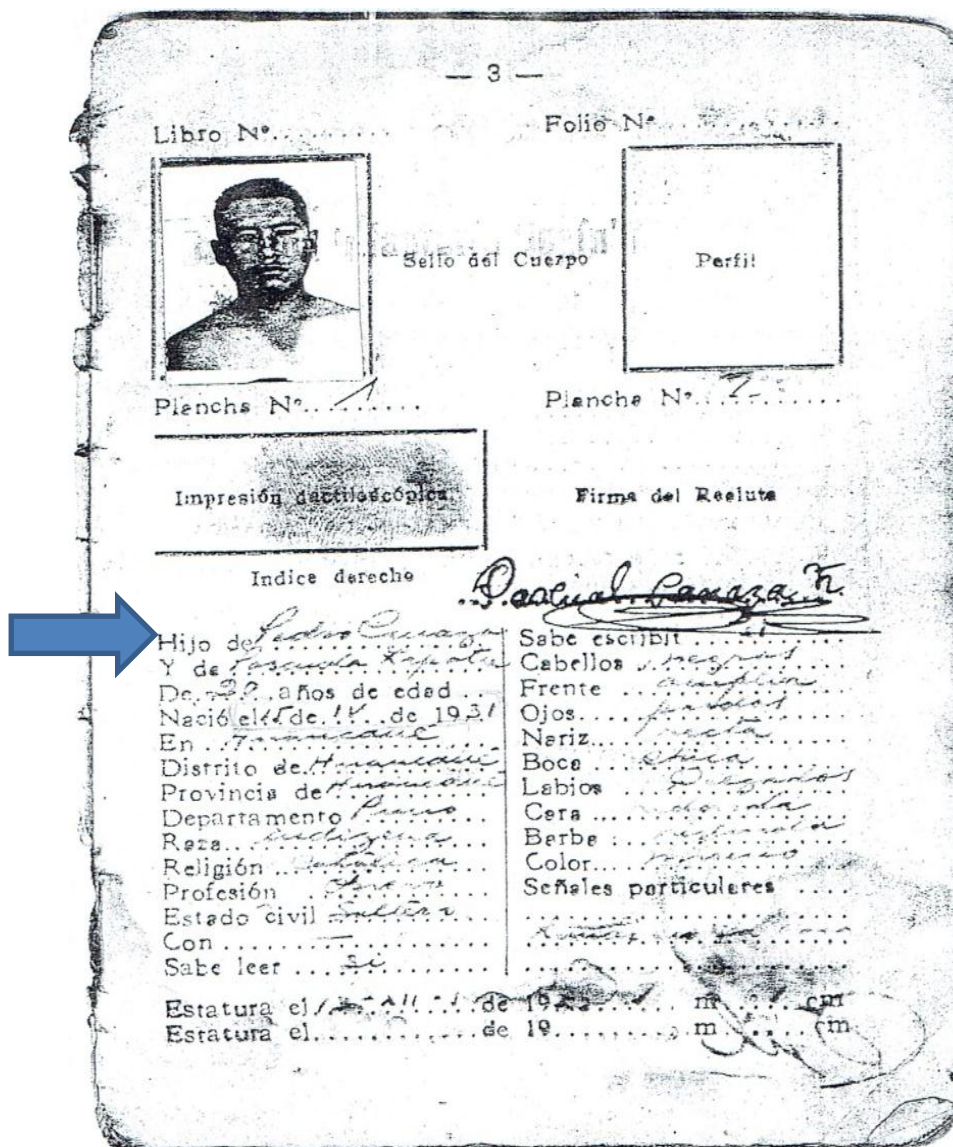 — 3 —
Libro Nº............ Folio Nº............
Sello del Cuerpo
Perfil
Plancha Nº.. 1 ........ Plancha Nº. 2 ........
Impresión dactiloscópica
Firma del Recluta
Indice derecho
Pascual Canaza
Hijo de Pedro Canaza
Y de Pascuala Zapata
De años de edad
Nació el 15 de IV de 1931
En Huancané
Distrito de Huancané
Provincia de Huancané
Departamento Puno
Raza indígena
Religión católica
Profesión
Estado civil Soltero
Con —
Sabe leer Si
Sabe escribir si
Cabellos negros
Frente amplia
Ojos pardos
Nariz recta
Boca chica
Labios Delgados
Cara
Barba
Color moreno
Señales particulares
Estatura el de 19 m cm
Estatura el............de 19......... m ...... cm